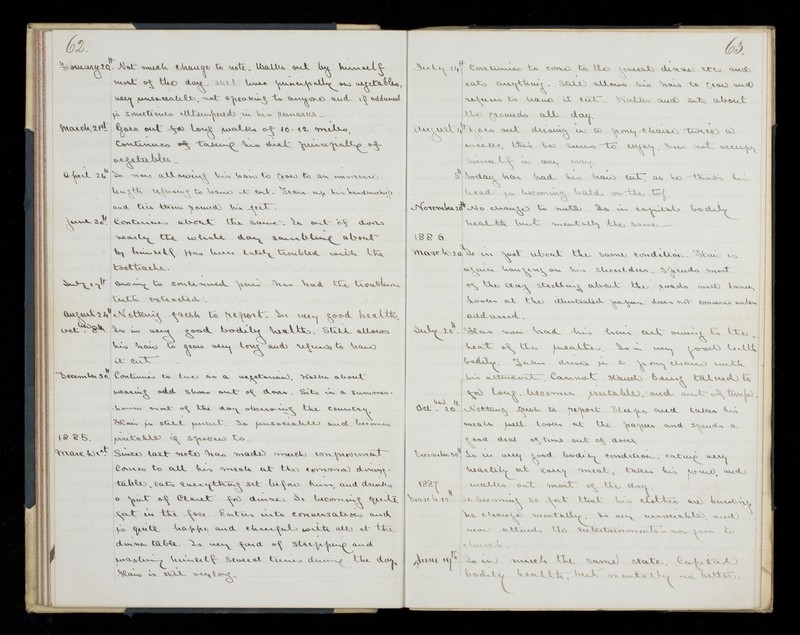 62.
February 29th Not much change to note. Walks out by himself
most of the day, still lives principally on vegetables,
very unsociable, not speaking to anyone and if addressed
is sometimes illtempered in his remarks.
March 21st Goes out for long walks of 10-12 miles,
Continues of taking his diet principally of
vegetables.
April 26th Is now allowing his hair to grow to an immense
length refusing to have it cut. Tears up his handkerchiefs
and ties them round his feet.
June 20th Continues about the same. Is out of doors
nearly the whole day rambling about
by himself. Has been lately troubled with the
toothache.
July 17th Owing to continued pain has had the troublesome
teeth extracted.
August 24th Nothing fresh to report. In very good health.
Oct. 8th Is in very good bodily health. Still allows
his hair to grow very long and refuses to have
it cut
December 30th Continues to live as a vegetarian, Walks about
wearing odd shoes out of doors. Sits in a summer-
house most of the day observing the country.
Hair is still uncut. Is unsociable and becomes
1885. irritable if spoken to.
March 1st Since last note has made much improvement
Comes to all his meals at the common dining-
table, eats everything set before him, and drinks
a pint of Claret for dinner. Is becoming quite
fat in the face. Enters into conversation and
is quite happy and cheerful with all at the
dinner table. Is very fond of stripping and
washing himself several times during the day.
Hair is still very long.
63.
July 14th Continues to come to the general dinner etc and
eats anything. Still allows his hair to grow and
refuses to have it cut. Walks and sits about
the grounds all day.
August 4th Goes out driving in a pony-chaise twice a
week, this he seems to enjoy. Does not occupy
himself in any way.
5th Today has had his hair cut, as he thinks his
head is becoming bald on the top.
November 20th No change to note. Is in capital bodily
health but mentally the same.
1886.
March 20th Is in just about the same condition. Hair is
again hanging on his shoulders. Spends most
of the day strolling about the roads and lanes,
looks at the illustrated papers, does not converse unless
addressed.
July 20th Has now had his hair cut owing to the
heat of the weather. Is in very good health
bodily. Takes drives in a pony chaise with
his attendant. Cannot stand being talked to
for long, becomes irritable and out of temper.
Oct. 20th Nothing fresh to report. Sleeps and takes his
meals well looks at the papers and spends a
good deal of time out of doors.
December 30th Is in very good bodily condition, eating very
heartily at every meal, takes his wine, and
1887 walks out most of the day.
March 12th Is becoming so fat that his clothes are bursting
no change mentally. Is very unsociable, and
never attends the entertainments nor goes to
church.
June 14th Is in much the same state. Capital
bodily health, but mentally no better.